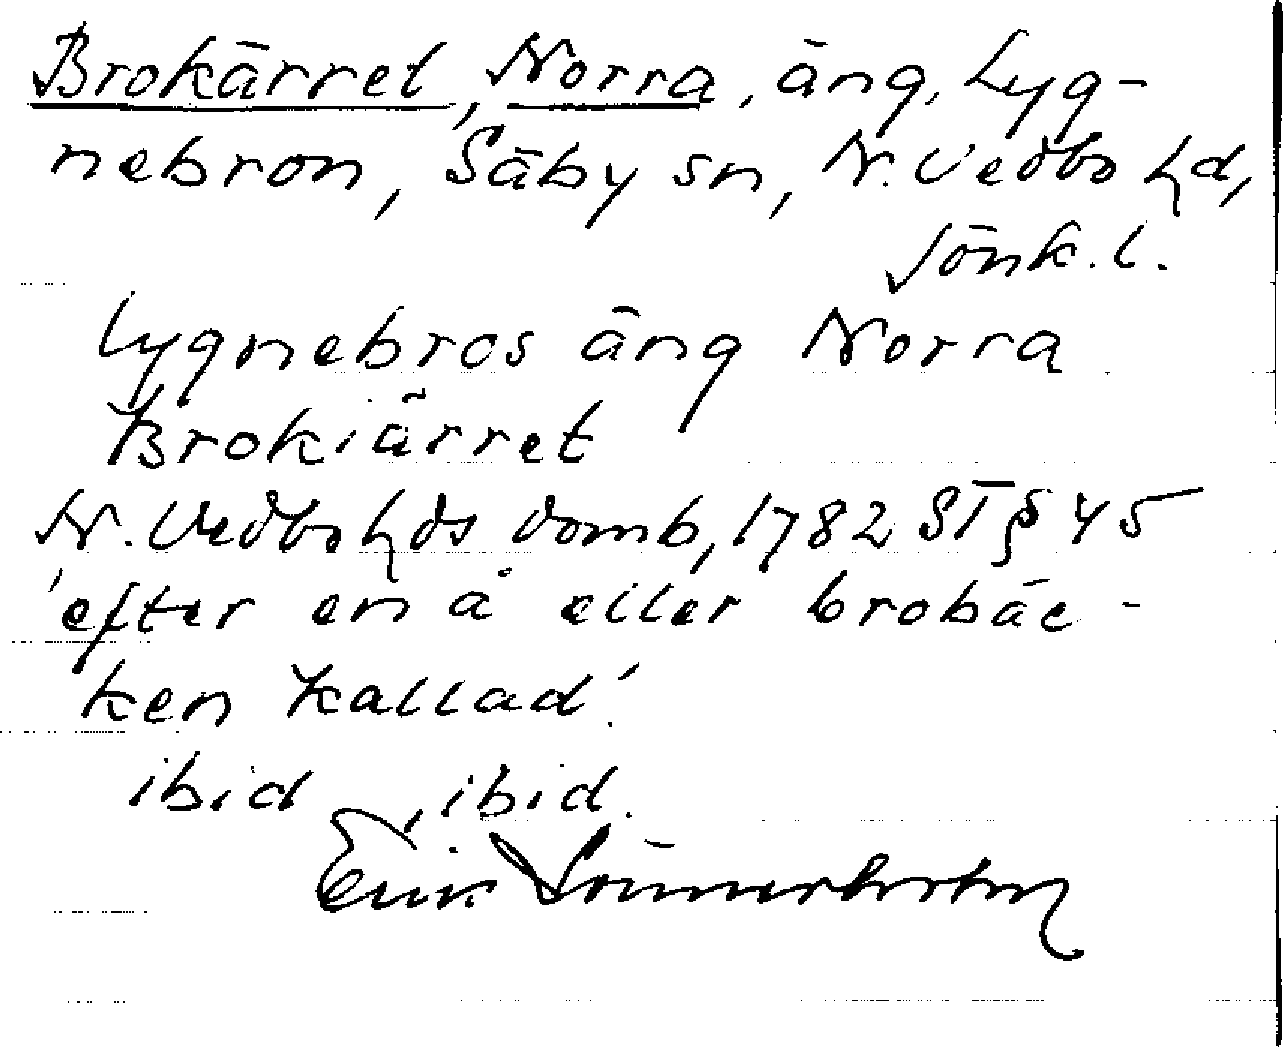 Brokärret, Norra, äng, Lyg-
nebron, Säby sn, N. Vedbo hd,
Jönk. l.
Lygnebros äng Norra
Brokiärret
N. Vedbo hds domb, 1782 ST § 45
'efter en å eller brobäc-
ken kallad'.
ibid, ibid.
Erik